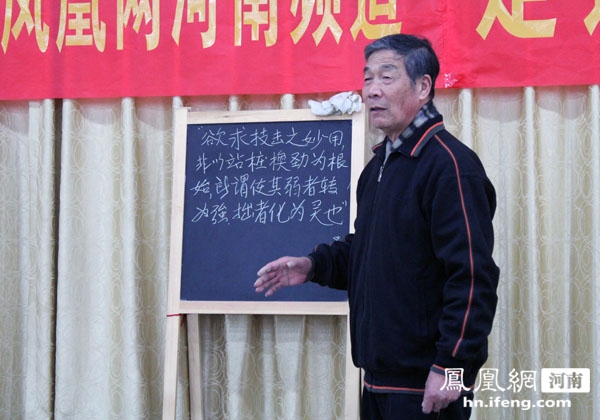 凤凰网河南频道 走进
“欲求技击之妙用,
非以站桩換劲为根
始,所谓使其弱者转
为强,拙者化为灵也”
鳳凰網 河南
hn.ifeng.com